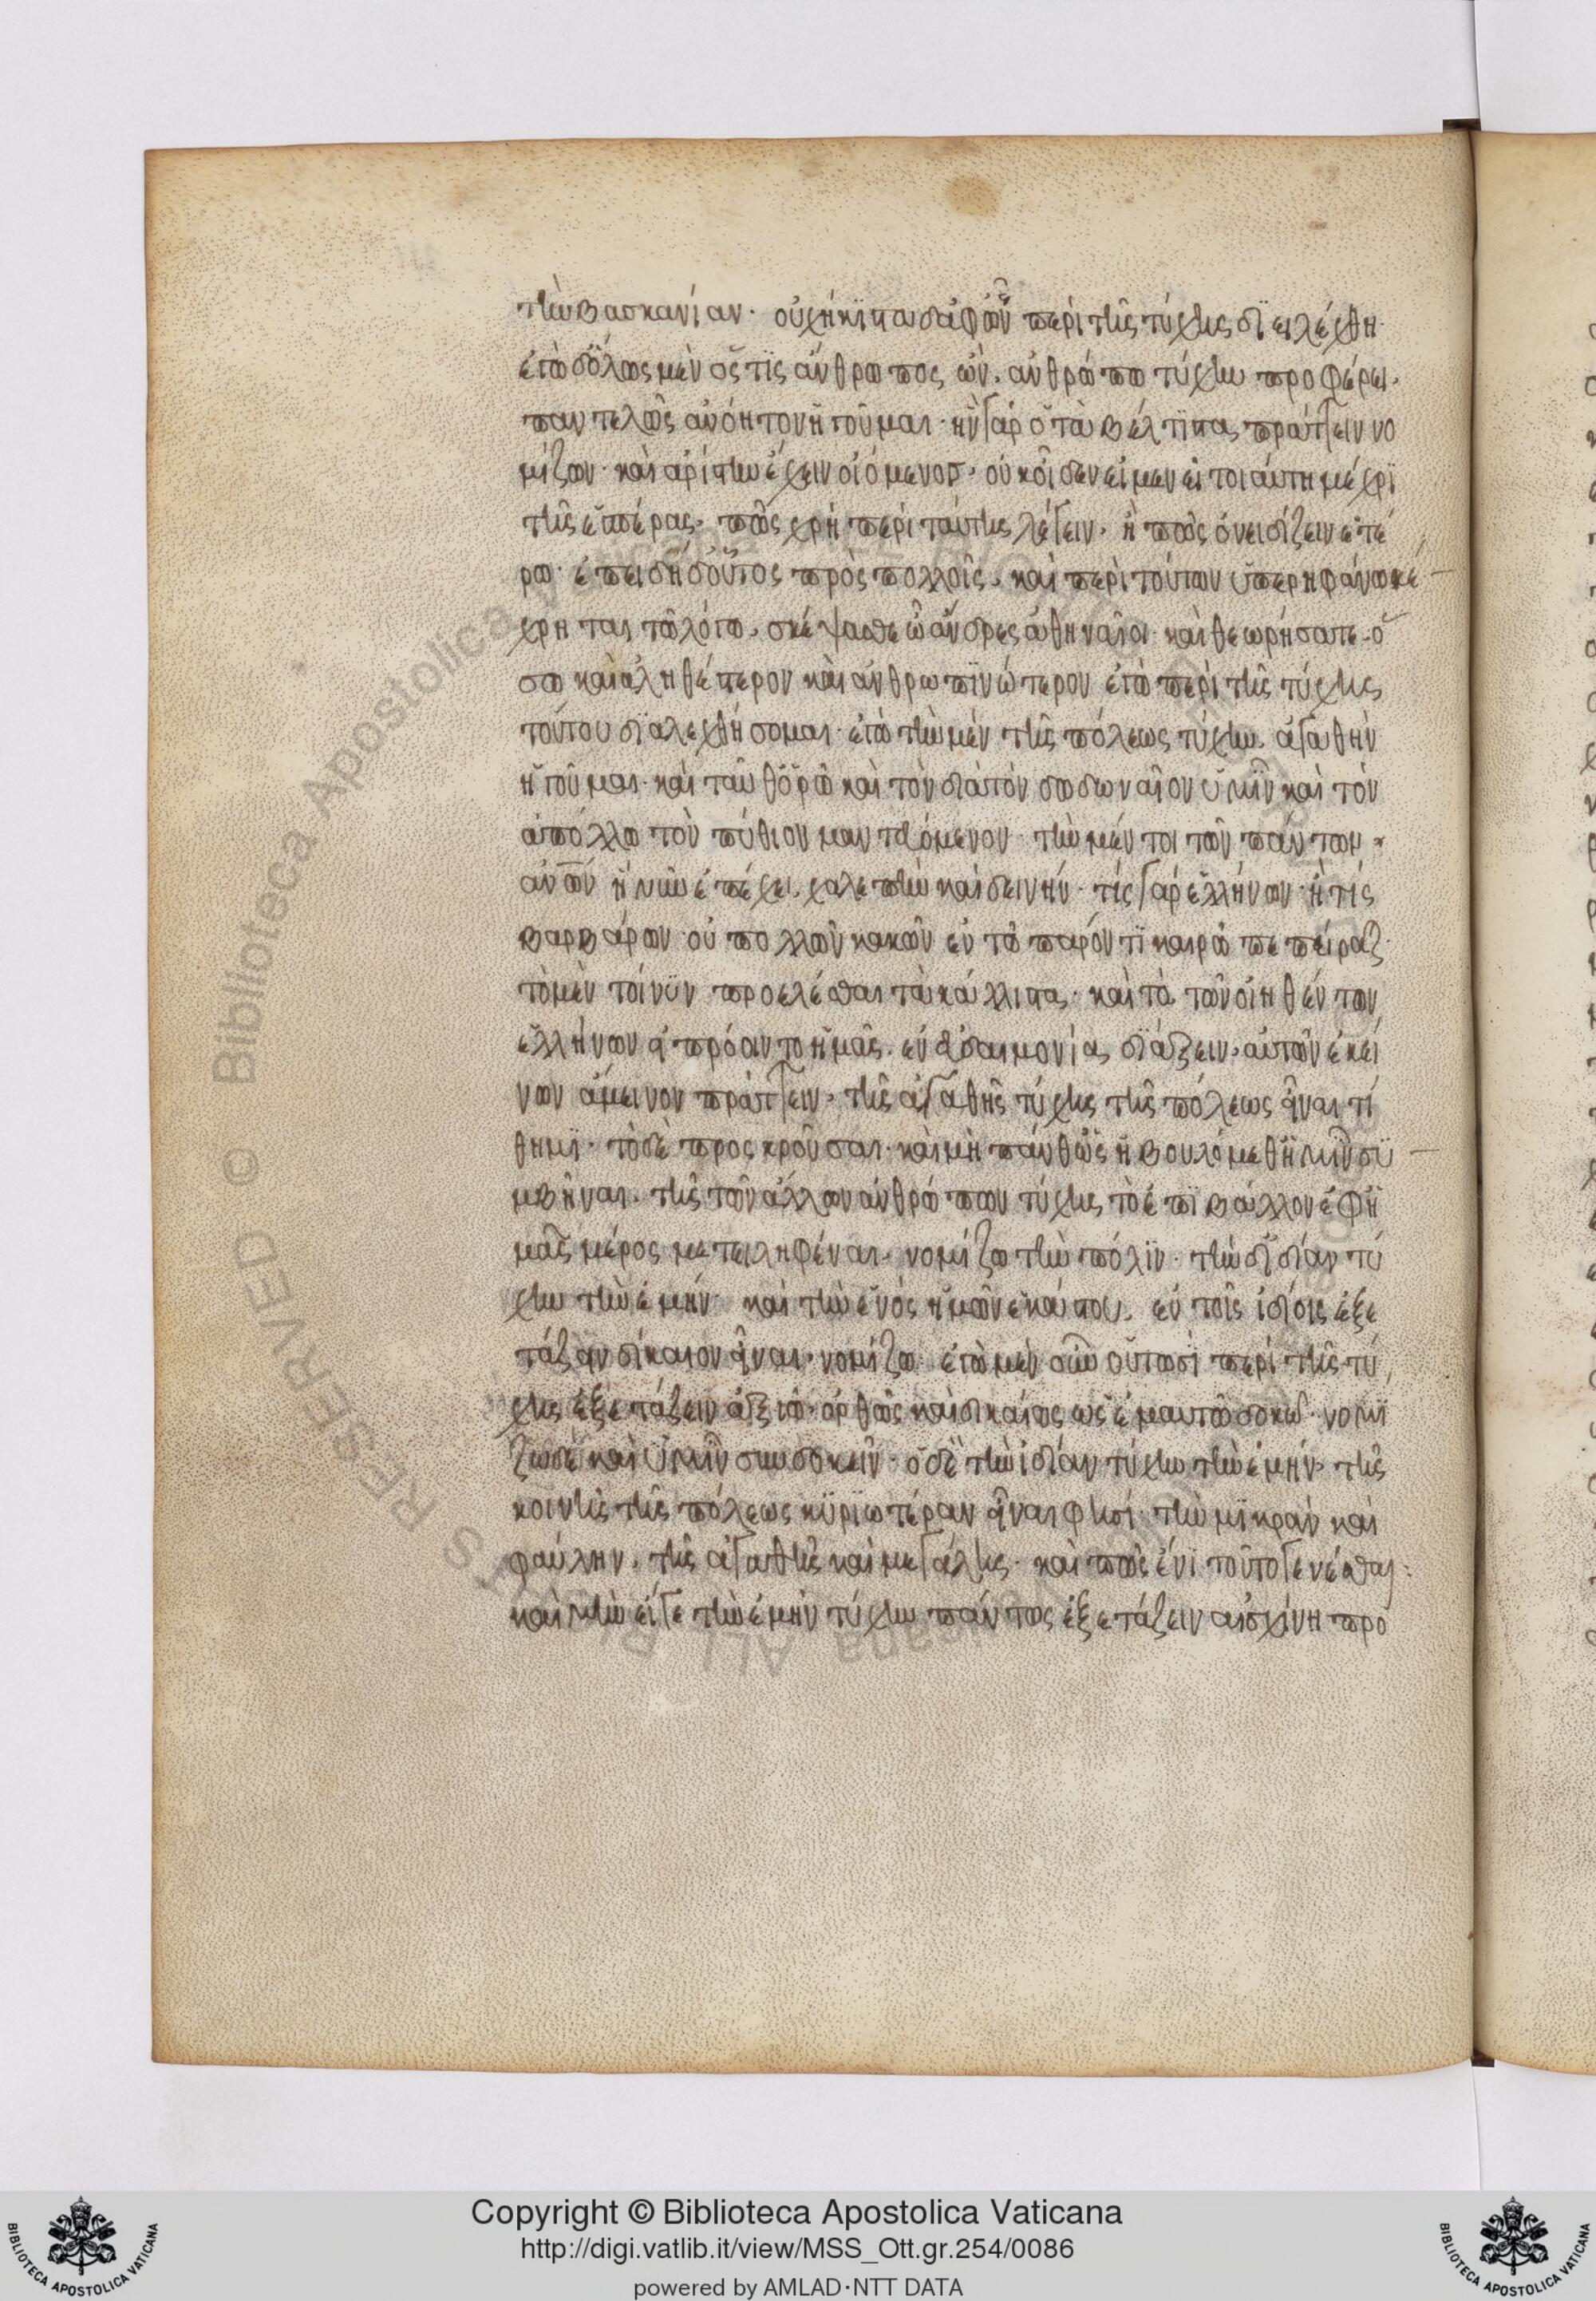 τὴν βασκανίαν· οὐχ ἥκιστα δ' ἀφ' ὧν περὶ τῆς τύχης διειλέχθη·
ἐγὼ δ' ὅλως μὲν ὅστις ἄνθρωπος ὢν, ἀνθρώπω τύχην προφέρει,
παντελῶς ἀνόητον ἡγοῦμαι· ἣν γὰρ ὁ τὰ βέλτιστα πράττειν νο
μίζων· καὶ ἀρίστην ἔχειν οἰόμενος, οὐκ οἶδεν εἰ μενεῖ τοιαύτη μέχρι
τῆς ἑσπέρας, πῶς χρὴ περὶ ταύτης λέγειν, ἢ πῶς ὀνειδίζειν ἑτέ
ρω· ἐπειδὴ δ' οὗτος πρὸς πολλοῖς, καὶ περὶ τούτων ὑπερηφάνως κέ
χρηται τῶ λόγω, σκέψασθε ὦ ἄνδρες ἀθηναῖοι· καὶ θεωρήσατε ὅ
σω καὶ ἀληθέστερον καὶ ἀνθρωπινώτερον ἐγὼ περὶ τῆς τύχης
τούτου διαλεχθήσομαι· ἐγὼ τὴν μὲν τῆς πόλεως τύχην, ἀγαθὴν
ἡγοῦμαι· καὶ ταῦθ' ὁρῶ καὶ τὸν δία τὸν δωδωναῖον ὑμῖν καὶ τὸν
ἀπόλλω τὸν πύθιον μαντευόμενον· τὴν μέντοι τῶν πάντων
ἀνων ἣ νῦν ἐπέχει, χαλεπὴν καὶ δεινήν· τίς γὰρ ἑλλήνων· ἢ τίς
βαρβάρων οὐ πολλῶν κακῶν ἐν τῶ παρόντι καιρῶ πεπείραται·
τὸ μὲν τοίνυν προελέσθαι τὰ κάλλιστα· καὶ τὸ τῶν οἰηθέντων
ἑλλήνων εἰ πρόοιντο ἡμᾶς, ἐν εὐδαιμονία διάξειν, αὐτῶν ἐκεί
νων ἄμεινον πράττειν, τῆς ἀγαθῆς τύχης τῆς πόλεως εἶναι τί
θημι· τὸ δὲ προσκροῦσαι· καὶ μὴ πάνθ' ὡς ἠβουλόμεθ' ἡμῖν συ
μβῆναι, τῆς τῶν ἄλλων ἀνθρώπων τύχης τὸ ἐπιβάλλον ἐφ' ἡ
μᾶς μέρος μετειληφέναι νομίζω τὴν πόλιν· τὴν δ' ἰδίαν τύ
χην τὴν ἐμήν· καὶ τὴν ἑνὸς ἡμῶν ἑκάστου, ἐν τοῖς ἰδίοις ἐξε
τάζειν δίκαιον εἶναι νομίζω· ἐγὼ μὲν οὖν οὑτωσὶ περὶ τῆς τύ
χης ἐξετάζειν ἀξιῶ· ὀρθῶς καὶ δικαίως ὡς ἐμαυτῶ δοκῶ· νομί
ζω δὲ καὶ ὑμῖν συνδοκεῖν· ὁ δὲ τὴν ἰδίαν τύχην τὴν ἐμήν, τῆς
κοινῆς τῆς πόλεως κυριωτέραν εἶναι φησί· τὴν μικρὰν καὶ
φαύλην, τῆς ἀγαθῆς καὶ μεγάλης· καὶ πῶς ἔνι τοῦτο γενέσθαι·
καὶ μὴν εἴ γε τὴν ἐμὴν τύχην πάντως ἐξετάζειν αἰσχίνη προ
Copyright © Biblioteca Apostolica Vaticana
http://digi.vatlib.it/view/MSS_Ott.gr.254/0086
powered by AMLAD·NTT DATA